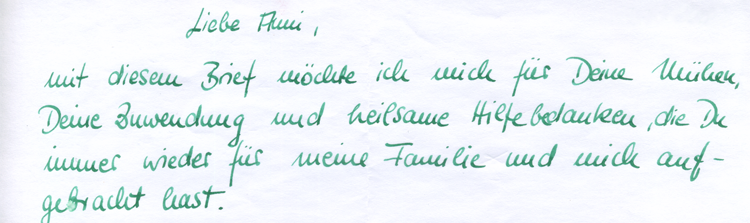 Liebe Anni,
mit diesem Brief möchte ich mich für Deine Mühen,
Deine Zuwendung und heilsame Hilfe bedanken, die Du
immer wieder für meine Familie und mich auf-
gebracht hast.